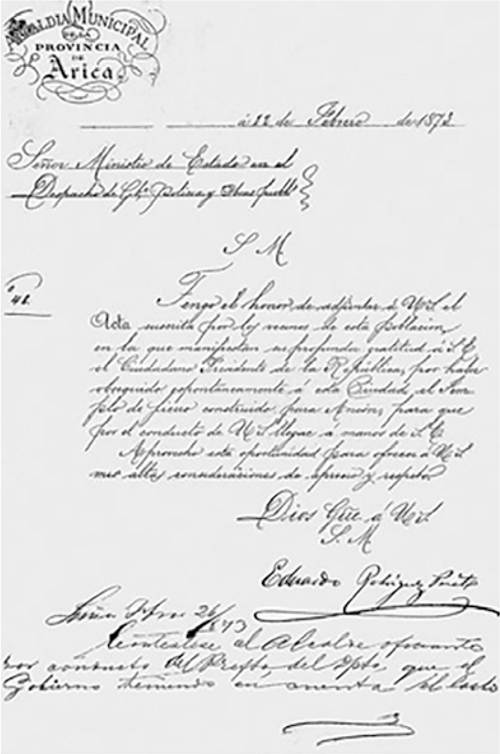 ALCALDIA MUNICIPAL
DE LA
PROVINCIA
DE
Arica
á 22 de Febrero de 1873
Señor Ministro de Estado en el
Despacho de Gbº Policia y Obras publ
S. M.
Tengo el honor de adjuntar á U.S. el
Acta suscrita por los vecinos de esta poblacion,
en la que manifiestan su profunda gratitud á S. E.
el Ciudadano Presidente de la República, por haber
obsequiado espontáneamente á esta Ciudad el Tem-
plo de fierro construido para Ancón, para que
por el conducto de U.S. llegue á manos de S. E.
Aprovecho esta oportunidad para ofrecer á U.S.
mis altas consideraciones de aprecio y respeto
Dios Gûe á U.S.
S. M.
Eduardo Rodriguez
26/873
Contéstese al Alcalde oficiante
por conducto del Prefto. del Dpto. que el
Gobierno teniendo en cuenta el